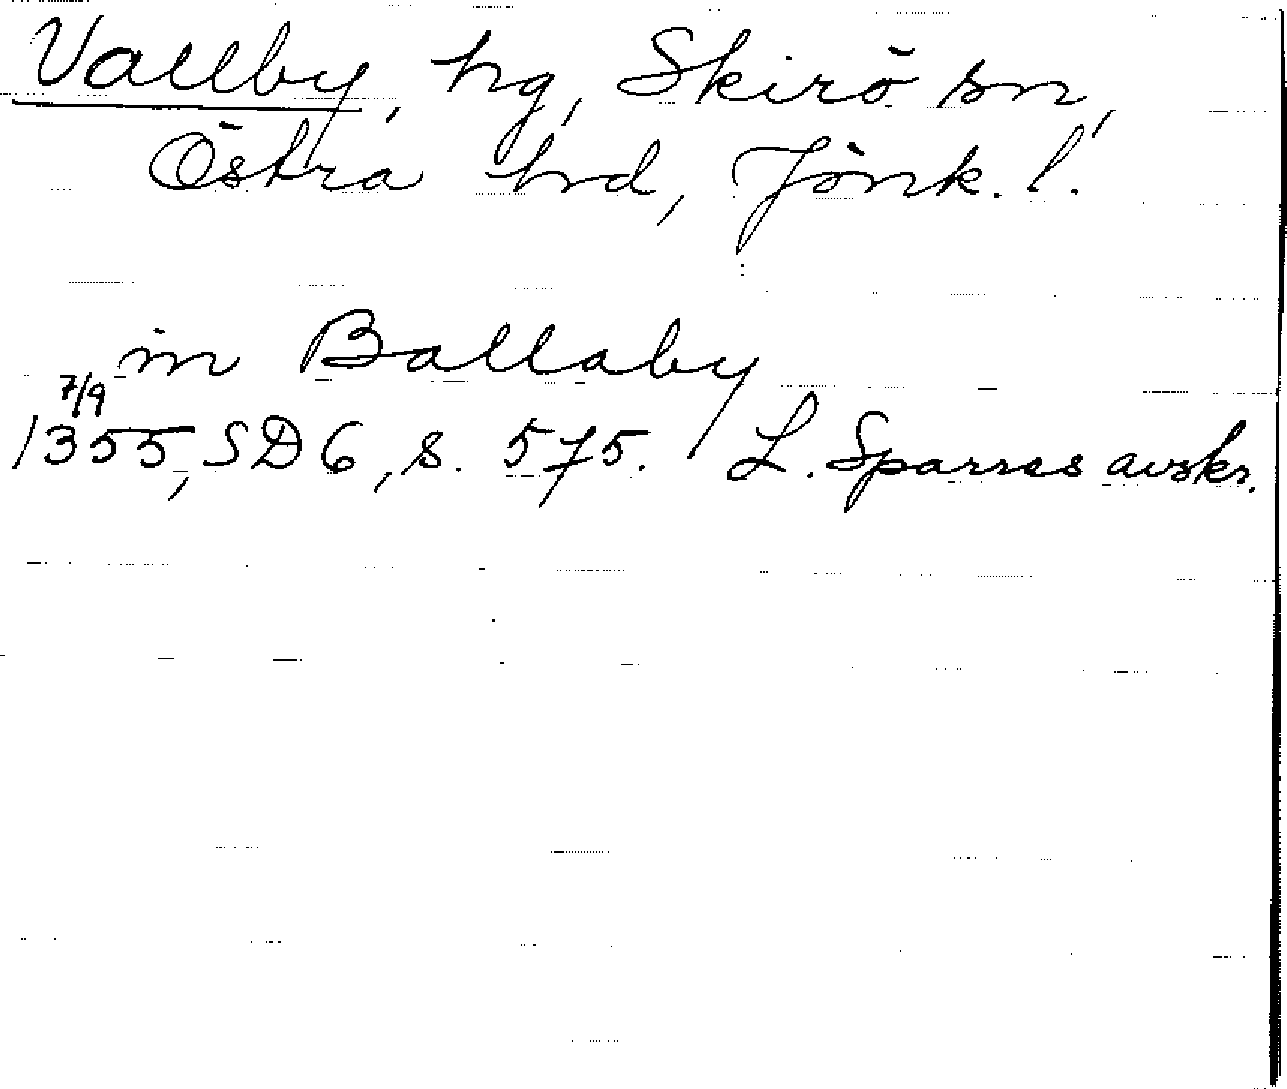 Vallby, hg, Skirö sn,
Östra hrd, Jönk. l.
in Ballaby
7/9
1355, SD 6, s. 575. L. Sparres avskr.